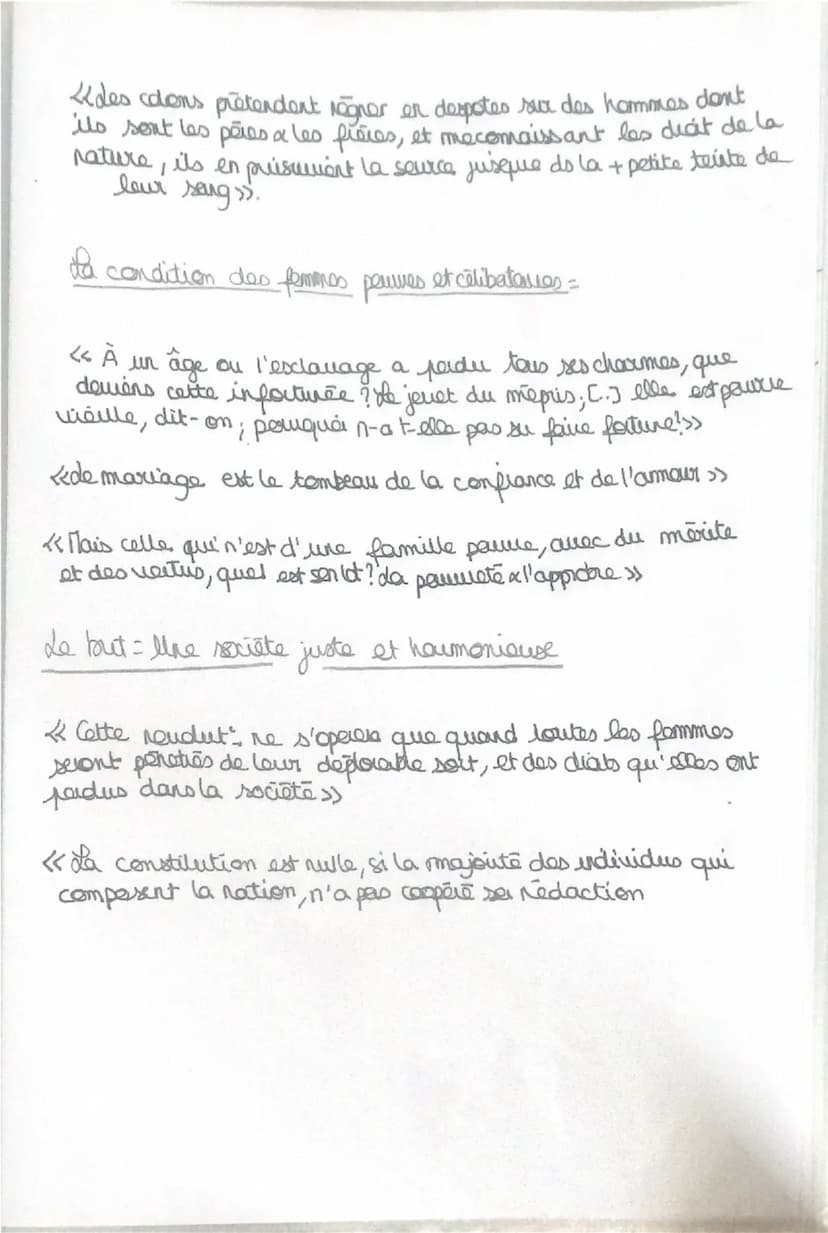 <<des colons prétendent régner en despotes sur des hommes dont
ils sont les pères & les frères, et meconnaissant les droit de la
nature, ils en poursuivent la source jusque ds la + petite teinte de
leur sang>>.
La condition des femmes pauvres et célibataires =
<< À un âge ou l'esclavage a perdu tous ses charmes, que
devient cette infortunée ? Le jouet du mépris; [..] elle est pauvre
vieille, dit-on; pourquoi n-a t-elle pas su faire fortune!>>
<<Le mariage est le tombeau de la confiance et de l'amour >>
<< Mais celle qui n'est d'une famille pauvre, avec du mérite
et des vertus, quel est son lot? La pauvreté & l'approbre >>
Le but = Une société juste et harmonieuse
<< Cette revolut° ne s'operera que quand toutes les femmes
seront pénétrés de leur déplorable sort, et des droits qu'elles ont
perdus dans la société >>
<< La constitution est nulle, si la majorité des individus qui
composent la nation, n'a pas coopéré sa rédaction